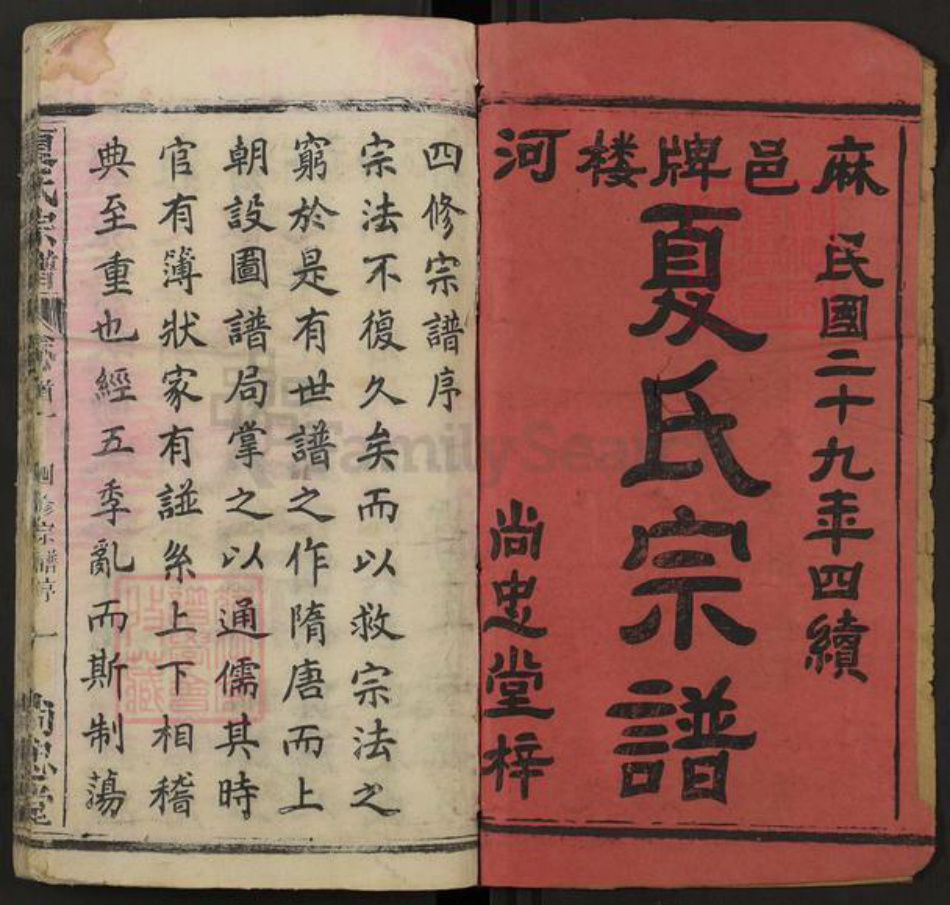 麻邑牌楼河
民國二十九年四續
夏氏宗譜
尚忠堂梓
四修宗譜序
宗法不復久矣而以救宗法之
窮於是有世譜之作隋唐而上
朝設圖譜局掌之以通儒其時
官有簿狀家有譜系上下相稽
典至重也經五季亂而斯制蕩
夏氏宗譜
卷首一
四修宗譜序
一
尚忠堂
FamilySearch